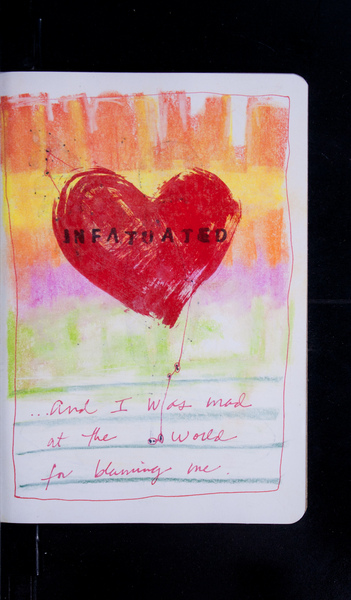 INFATUATED
...and I was mad
at the world
for blaming me.